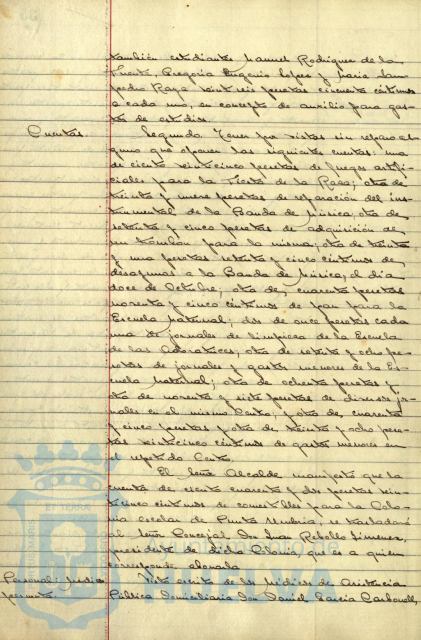 también estudiantes Manuel Rodriguez de la
Fuente, Gregorio Eugenio Lopez y Maria Sam-
pedro Raya veintiseis pesetas cincuenta céntimos
a cada uno, en concepto de auxilio para gas-
tos de estudios.
Cuentas.
Segundo. Tener por vistas sin reparo al-
guno que oponer las siguientes cuentas: una
de ciento veinticinco pesetas de fuegos artifi-
ciales para la Fiesta de la Raza; otra de
treinta y nueve pesetas de reparación del ins-
trumental de la Banda de música; otra de
setenta y cinco pesetas de adquisición de
un tambor para la misma; otra de treinta
y una pesetas setenta y cinco céntimos de
desayunos a la Banda de música, el dia
doce de Octubre; otra de, cuarenta pesetas
noventa y cinco céntimos de pan para la
Escuela maternal; dos de once pesetas cada
una de jornales de limpieza de la Escuela
de las Adoratrices; otra de setenta y ocho pe-
setas de jornales y gastos menores de la Es-
cuela maternal; otra de ochenta pesetas y
otra de noventa y siete pesetas de diversos jor-
nales en el mismo Centro; y otra de, cuarenta
y cinco pesetas y otra de treinta y ocho pese-
tas veinticinco céntimos de gastos menores en
el repetido Centro.
El Señor Alcalde manifestó que la
cuenta de ciento cuarenta y dos pesetas vein-
ticinco céntimos de comestibles para la Colo-
nia escolar de Punta Umbria, se trasladará
al Señor Concejal Don Juan Rebollo Jimenez,
presidente de dicha Colonia, que es a quien
corresponde abonarla
Personal: 
permuta.
Visto escrito de los médicos de Asistencia
Pública Domiciliaria Don Daniel Garcia Carbonell,